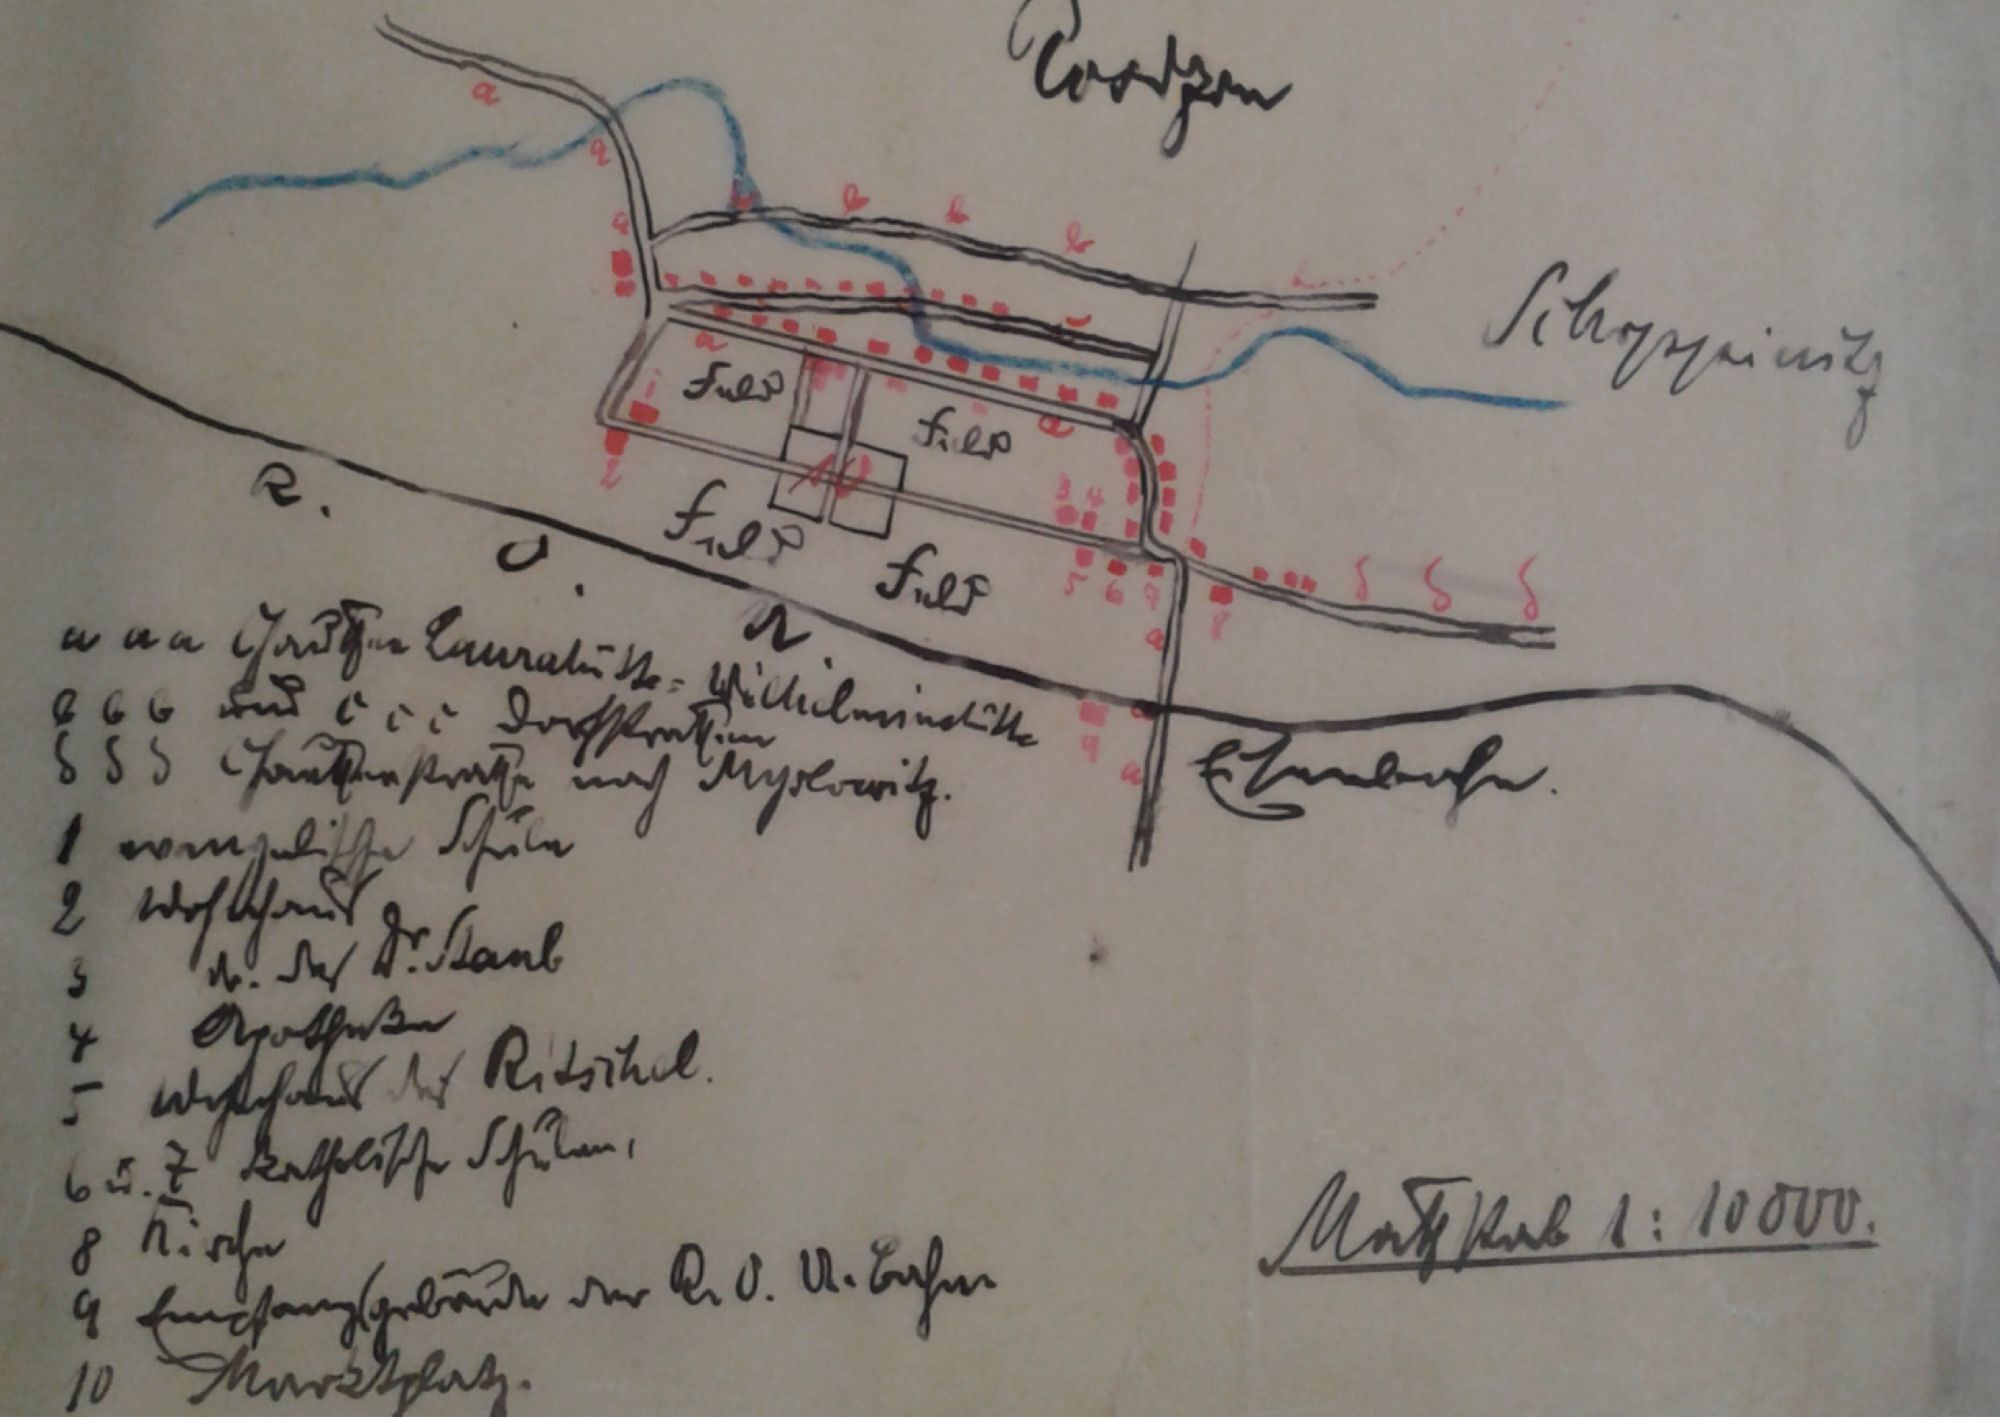 Rosdzin
Schoppinitz
a
a
a
b
b
b
c
a
Feld
Feld
a
1
2
10
3 4
Feld
Feld
5 6 7
8
δ δ δ
a
9
a
R. O. U.
Eisenbahn.
a a a Chaussee Laurahütte-Wilhelminehütte
b b b und c c c Dorfstraßen
δ δ δ Chausseestraße nach Myslowitz.
1 evangelische Schule
2 Wohnhaus
3 do. des Dr. Staub
4 Apotheke
5 Wohnhaus des Ritschel.
6 u. 7 katholische Schulen,
8 Kirche
9 Empfangsgebäude der R. O. U. Bahn
10 Marktplatz.
Maßstab 1:10000.